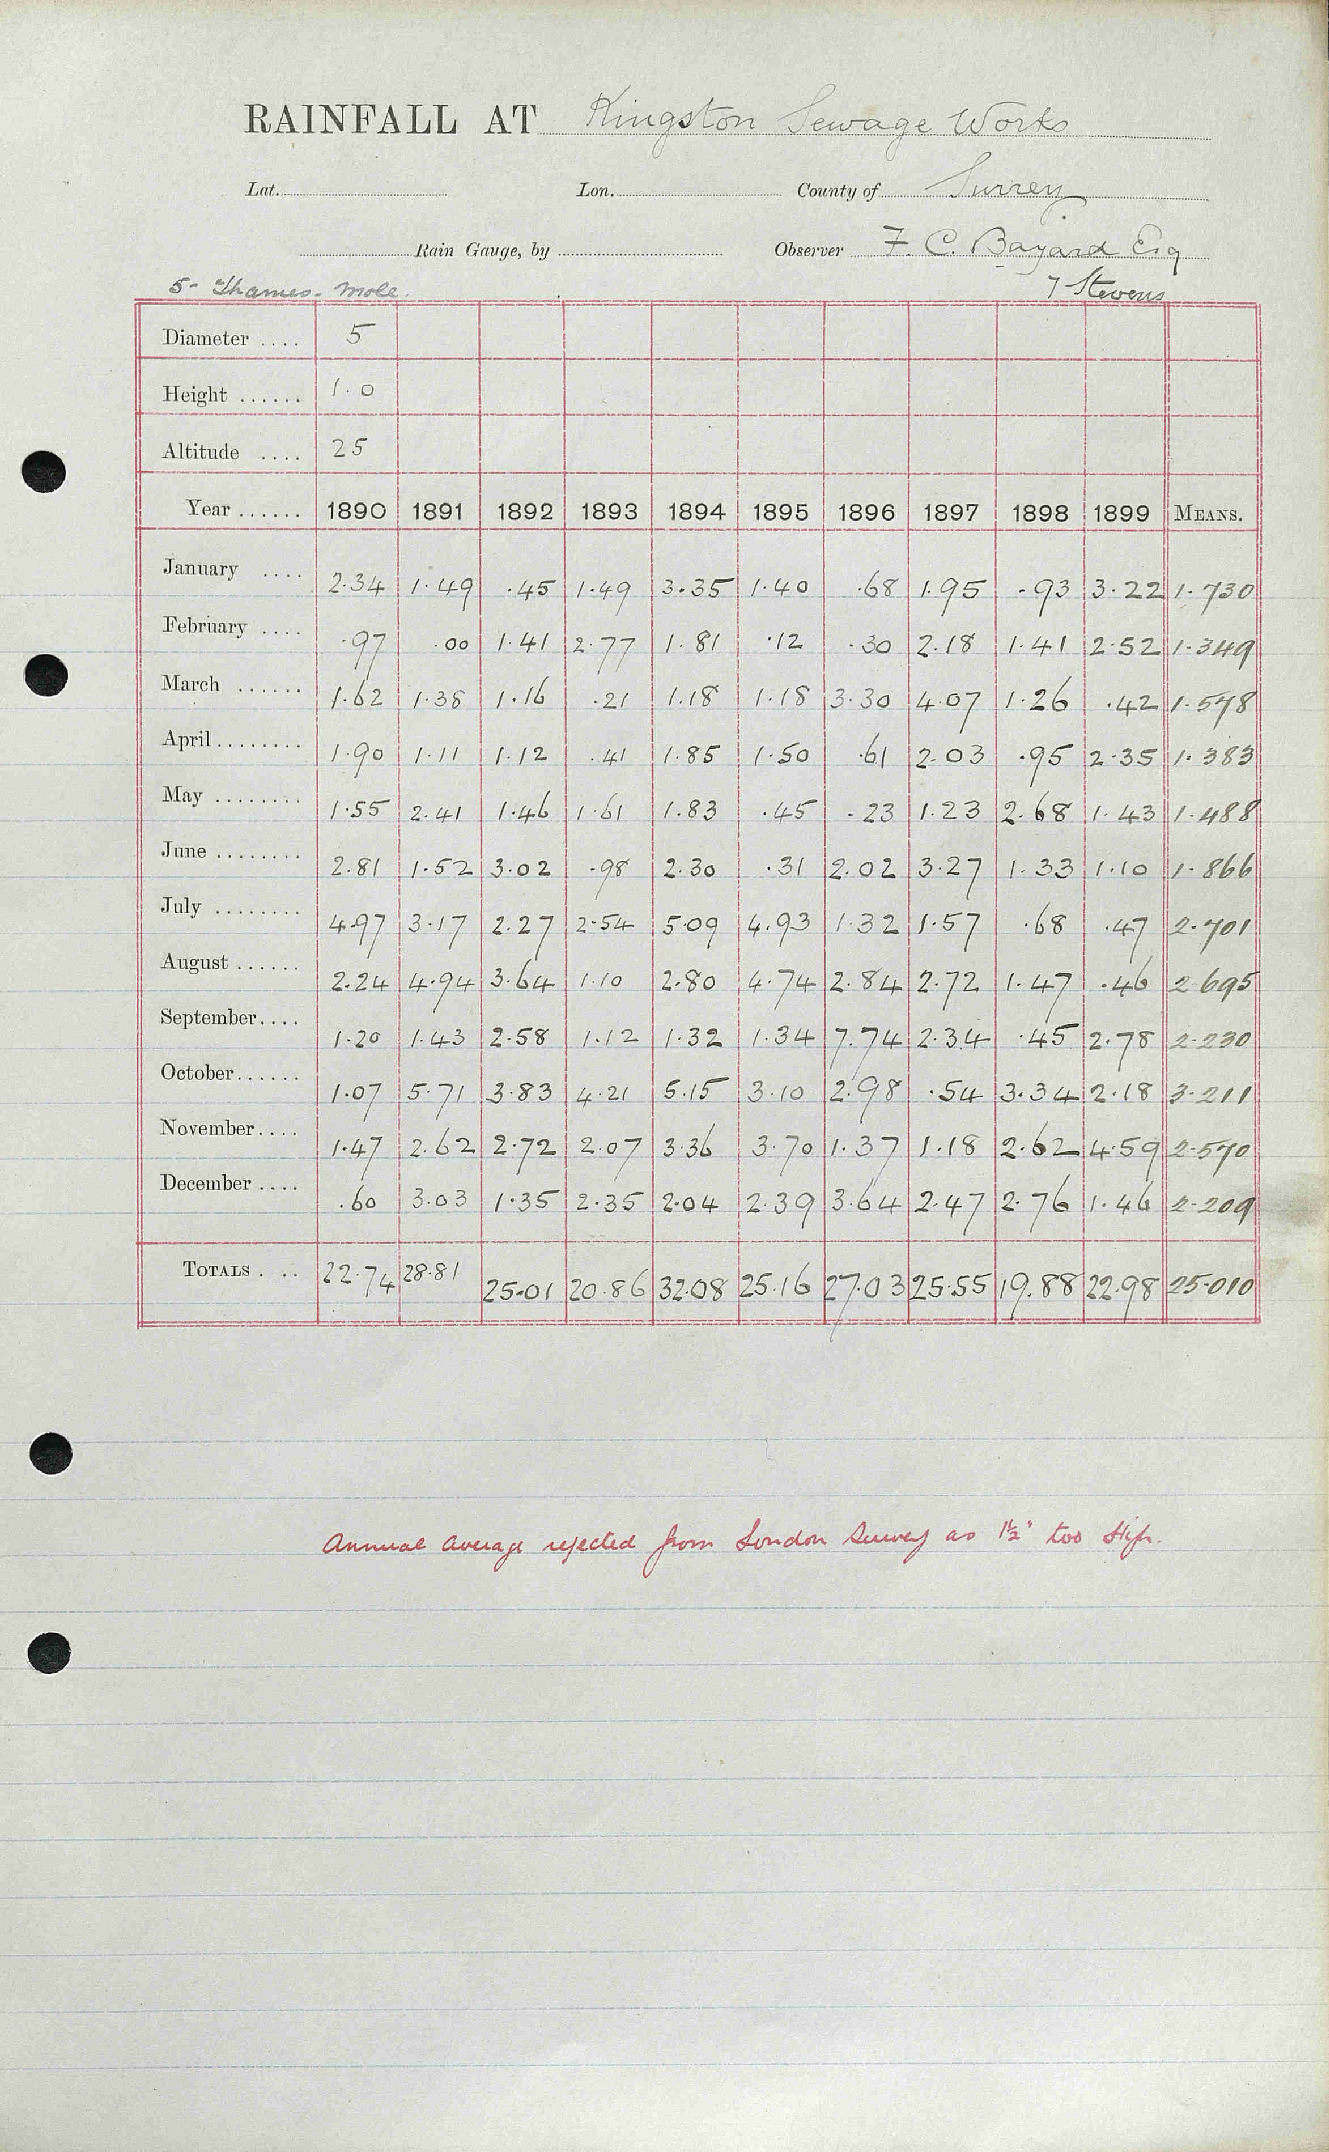 RAINFALL AT Kingston Sewage Works
Lat. Lon. County of Surrey
Rain Gauge, by Observer F. C. Bayard Esq
5- Thames-Mole. 7 Stevens
Diameter .... 5
Height ...... 1.0
Altitude .... 25
Year ...... 1890 1891 1892 1893 1894 1895 1896 1897 1898 1899 MEANS.
January .... 2.34 1.49 .45 1.49 3.35 1.40 .68 1.95 .93 3.22 1.730
February .... .97 .00 1.41 2.77 1.81 .12 .30 2.18 1.41 2.52 1.349
March ...... 1.62 1.38 1.16 .21 1.18 1.18 3.30 4.07 1.26 .42 1.578
April ........ 1.90 1.11 1.12 .41 1.85 1.50 .61 2.03 .95 2.35 1.383
May ........ 1.55 2.41 1.46 1.61 1.83 .45 .23 1.23 2.68 1.43 1.488
June ........ 2.81 1.52 3.02 .98 2.30 .31 2.02 3.27 1.33 1.10 1.866
July ........ 4.97 3.17 2.27 2.54 5.09 4.93 1.32 1.57 .68 .47 2.701
August ...... 2.24 4.94 3.64 1.10 2.80 4.74 2.84 2.72 1.47 .46 2.695
September.... 1.20 1.43 2.58 1.12 1.32 1.34 7.74 2.34 .45 2.78 2.230
October...... 1.07 5.71 3.83 4.21 5.15 3.10 2.98 .54 3.34 2.18 3.211
November.... 1.47 2.62 2.72 2.07 3.36 3.70 1.37 1.18 2.62 4.59 2.570
December .... .60 3.03 1.35 2.35 2.04 2.39 3.64 2.47 2.76 1.46 2.209
TOTALS . .. 22.74 28.81 25.01 20.86 32.08 25.16 27.03 25.55 19.88 22.98 25.010
Annual average rejected from London Survey as 1½" too high.